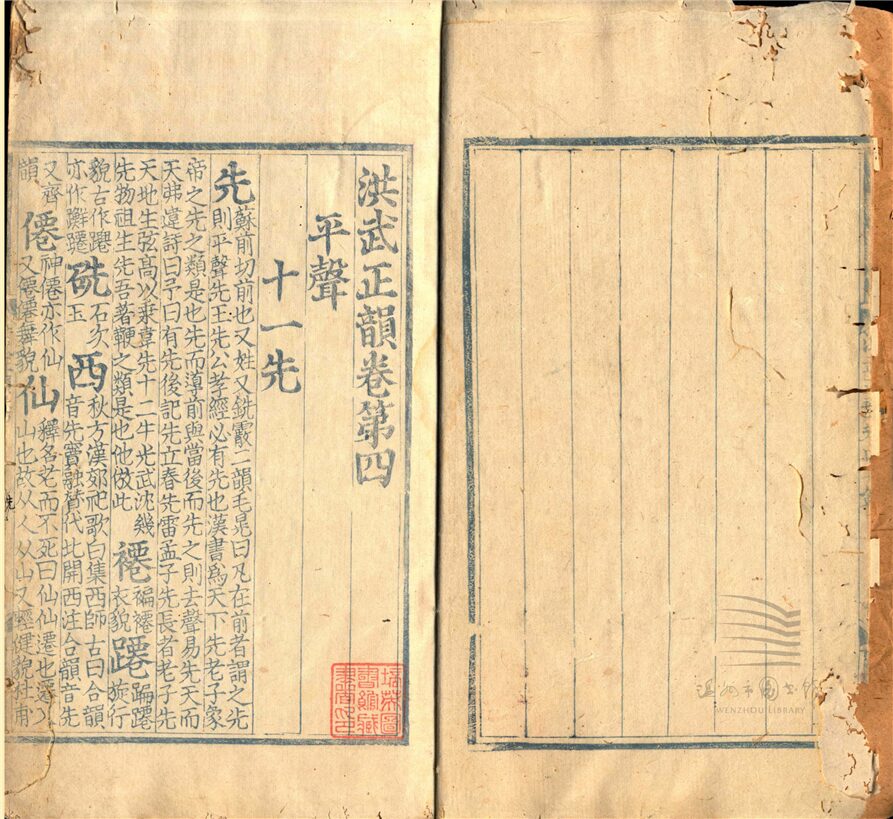 洪武正韻卷第四
平聲
十一先
先 蘇前切前也又姓又銑霰二韻毛晃曰凡在前者謂之先
則平聲先王先公孝經必有先也漢書為天下先老子象
帝之先之類是也先而導前與當後而先之則去聲易先天而
天弗違詩曰予曰有先後記先立春先雷孟子先長者老子先
天地生弦高以乘韋先十二牛光武沈幾
先物祖生先吾著鞭之類是也他倣此 褼 褊褼
衣貌 蹮 蹁蹮
旋行
貌古作躚
亦作躚 硃 石次
玉 西 秋方漢郊祀歌白集西師古曰合韻
音先竇融贊代北開西注合韻音先
又齊
韻 僊 神僊亦作仙
又僊僊舞貌 仙 釋名老而不死曰仙仙遷也遷入
山也故从人从山又輕健貌杜甫
WENZHOU LIBRARY